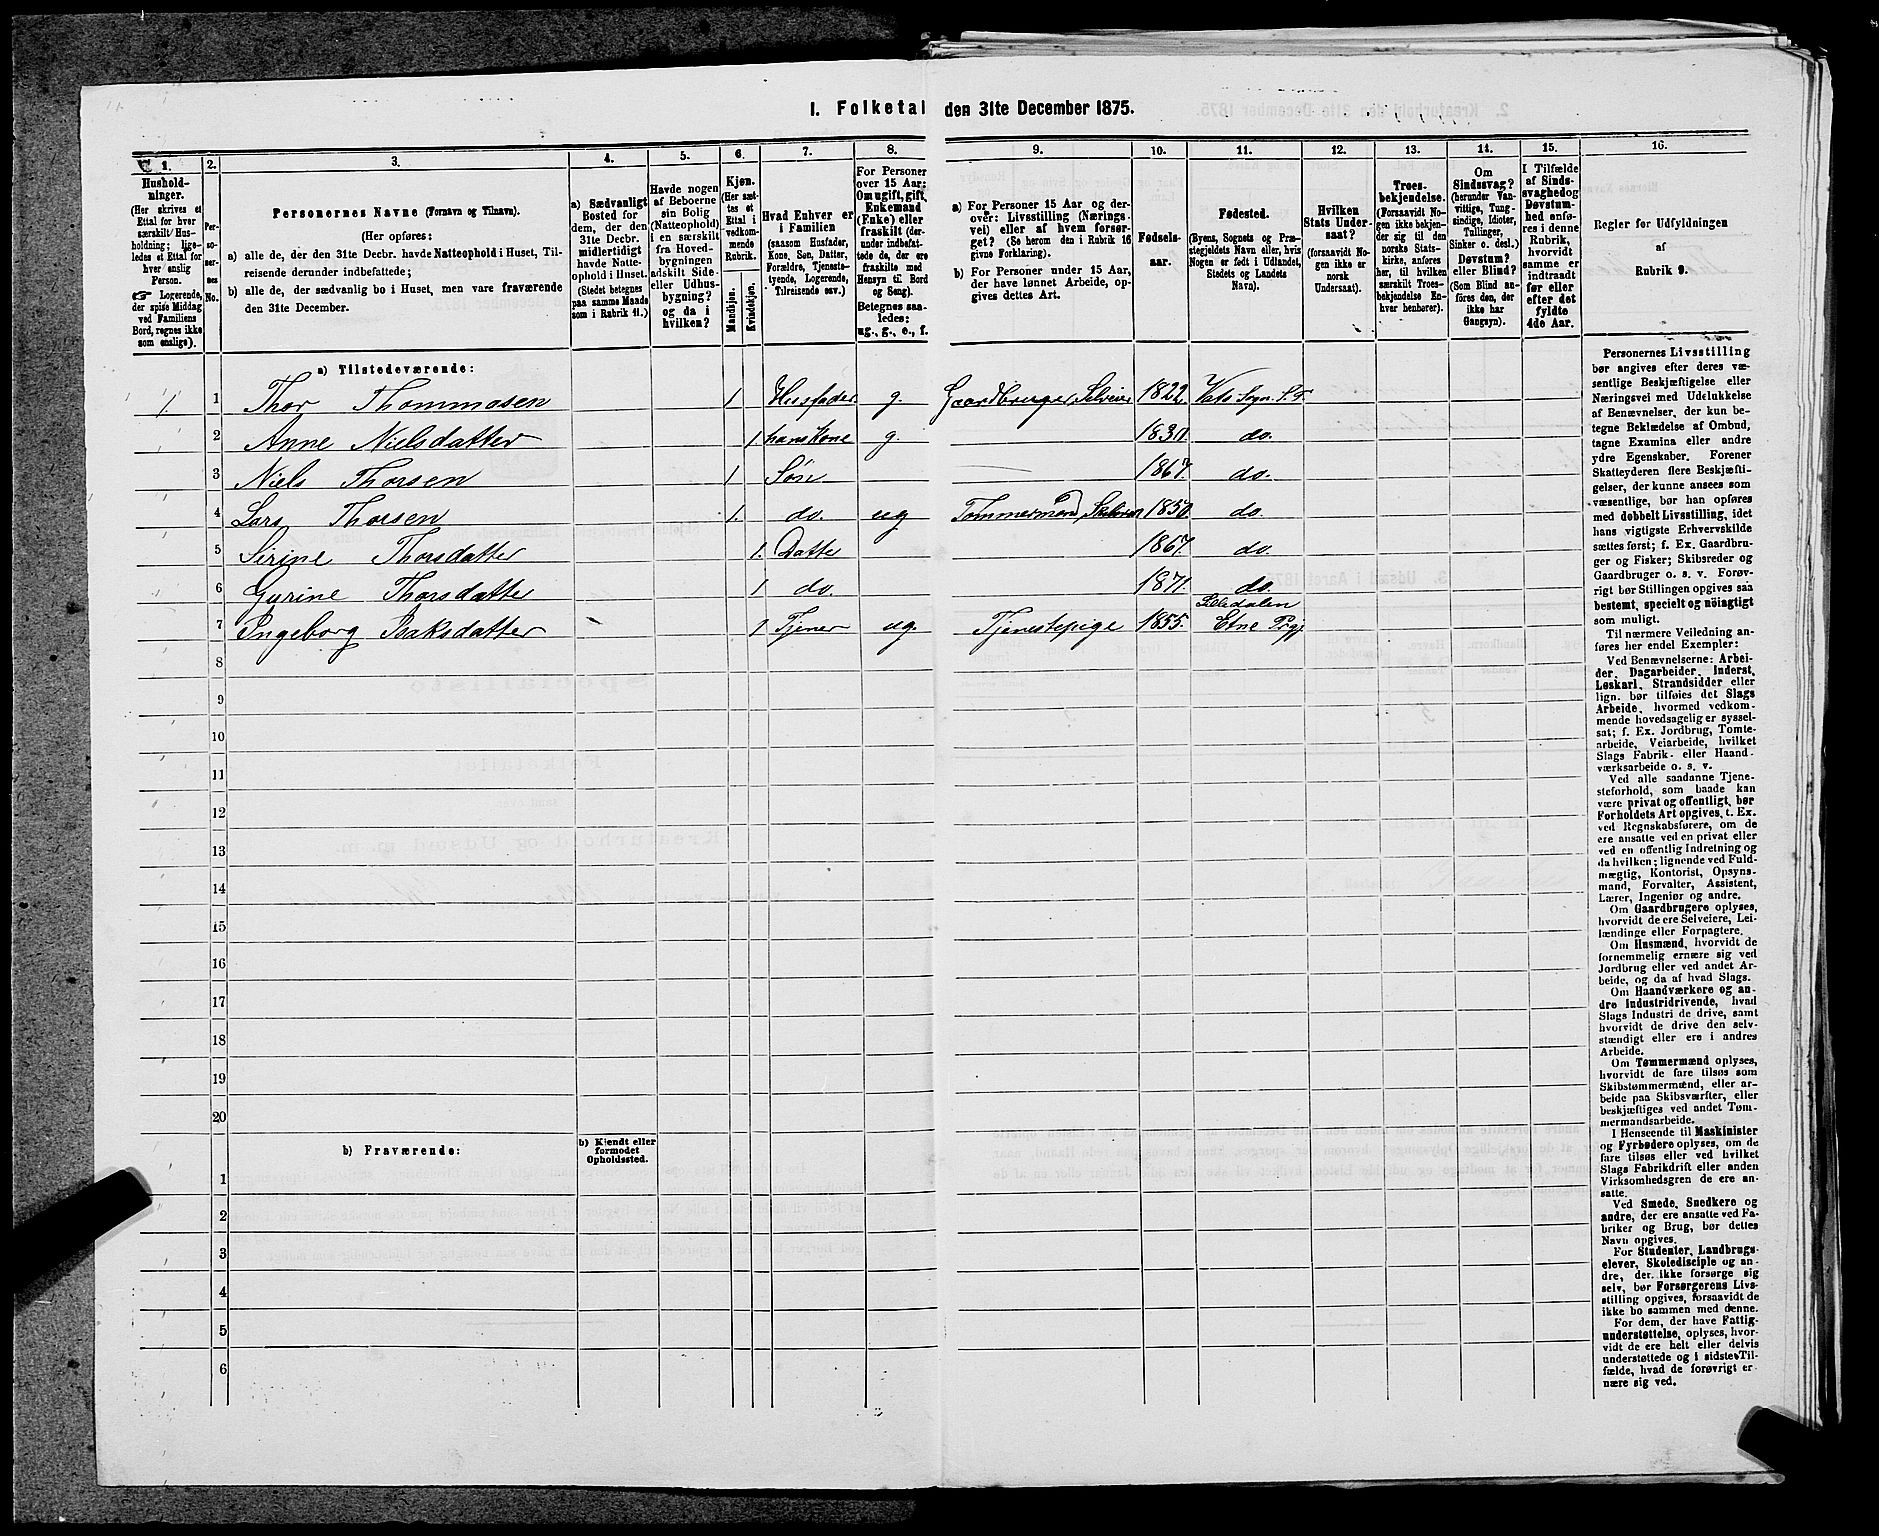 1. Folketal den 31te December 1875.
1. 2. 3. 4. 5. 6. 7. 8. 9. 10. 11. 12. 13. 14. 15. 16.
Hushold-
ninger.
(Her skrives et
Ettal for hver
særskilt Hus-
holdning; lige-
ledes et Ettal for
hver enslig
Person.
☞ Logerende,
der spise Middag
ved Familiens
Bord, regnes ikke
som enslige).
Per-
so-
ner-
nes
No.
Personernes Navne (Fornavn og Tilnavn).
(Her opføres:
a) alle de, der den 31te Decbr. havde Natteophold i Huset, Til-
reisende derunder indbefattede;
b) alle de, der sædvanlig bo i Huset, men vare fraværende
den 31te December.
a) Sædvanligt
Bosted for
dem, der den
31te Decbr.
midlertidigt
havde Natte-
ophold i Huset.
(Stedet betegnes
paa samme Maade
som i Rubrik 11.)
Havde nogen
af Beboerne
sin Bolig
(Natteophold)
i en særskilt
fra Hoved-
bygningen
adskilt Side-
eller Udhus-
bygning?
og da i
hvilken?
Kjøn.
(Her sæt-
tes et
Ettal i
vedkom-
mende
Rubrik.
Mandkjøn.
Kvindekjøn.
Hvad Enhver er
i Familien
(saasom Husfader,
Kone, Søn, Datter,
Forældre, Tjeneste-
tyende, Logerende,
Tilreisende osv.)
For Personer
over 15 Aar:
Om ugift, gift,
Enkemand
(Enke) eller
fraskilt (der-
under indbefat-
tede de, der ere
fraskilte med
Hensyn til Bord
og Seng).
Betegnes saa-
ledes:
ug., g., e., f.
a) For Personer 15 Aar og der-
over: Livsstilling (Nærings-
vei) eller af hvem forsør-
get? (Se herom den i Rubrik 16
givne Forklaring).
b) For Personer under 15 Aar,
der have lønnet Arbeide, op-
gives dettes Art.
Fødsels-
aar.
Fødested.
(Byens, Sognets og Præ-
stegjeldets Navn eller, hvis
Nogen er født i Udlandet,
Stedets og Landets
Navn).
Hvilken
Stats Under-
saat?
(forsaavidt No-
gen ikke er
norsk
Undersaat).
Troes-
bekjendelse.
(Forsaavidt No-
gen ikke bekjen-
der sig til den
norske Stats-
kirke, anføres
her, til hvilken
særskilt Troes-
bekjendelse En-
hver henhører).
Om
Sindssvag?
(herunder Van-
vittige, Tung-
sindige, Idioter,
Tullinger,
Sinker o. desl.)
Døvstum?
eller Blind?
(Som Blind an-
føres den, der
ikke har
Gangsyn).
I Tilfælde
af Sinds-
svaghed og
Døvstum-
hed anfø-
res i denne
Rubrik,
hvorvidt
samme er
indtraadt
før eller
efter det
fyldte
4de Aar.
Regler for Udfyldningen
af
Rubrik 9.
a) Tilstedeværende:
1. 1 Thor Thommasen 1 Husfader g. Gaardbruger Selveier 1822 Vats Sogn
2 Anne Nielsdatter 1. hans Kone g. 1830. do.
3 Niels Thorsen 1 Søn 1867. do.
4 Lars Thorsen 1. do. ug Tømmermand 1850 do.
5 Sirine Thorsdatter 1. Datte 1867. do.
6 Gurine Thorsdatter 1 do. 1871. do.
7 Ingeborg 1 Tjener ug. Tjenestepige 1855. Etne Prgj
8
9
10
11
12
13
14
15
16
17
18
19
20
b) Fraværende:
b) Kjendt eller
formodet
Opholdssted.
1
2
3
4
5
6
Personernes Livsstilling
bør angives efter deres væ-
sentlige Beskjæftigelse eller
Næringsvei med Udelukkelse
af Benævnelser, der kun be-
tegne Beklædelse af Ombud,
tagne Examina eller andre
ydre Egenskaber. Forener
Skatteyderen flere Beskjæfti-
gelser, der kunne ansees som
væsentlige, bør han opføres
med dobbelt Livsstilling, idet
hans vigtigste Erhvervskilde
sættes først; f. Ex. Gaardbru-
ger og Fisker; Skibsreder og
Gaardbruger o. s. v. Forøv-
rigt bør Stillingen opgives saa
bestemt, specielt og nøiagtigt
som muligt.
Til nærmere Veiledning an-
føres her endel Exempler:
Ved Benævnelserne: Arbei-
der, Dagarbeider, Inderst,
Løskarl, Strandsidder eller
lign. bør tilføies det Slags
Arbeide, hvormed vedkom-
mende hovedsagelig er syssel-
sat; f. Ex. Jordbrug, Tomte-
arbeide, Veiarbeide, hvilket
Slags Fabrik- eller Haand-
værksarbeide o. s. v.
Ved alle saadanne Tjene-
steforhold, som baade kan
være privat og offentligt, bør
Forholdets Art opgives, f. Ex.
ved Regnskabsførere, om de
ere ansatte ved en privat eller
ved en offentlig Indretning og
da hvilken; lignende ved Fuld-
mægtig, Kontorist, Opsyns-
mand, Forvalter, Assistent,
Lærer, Ingeniør og andre.
Om Gaardbrugere oplyses,
hvorvidt de ere Selveiere, Lei-
lændinge eller Forpagtere.
Om Husmænd, hvorvidt de
fornemmelig ernære sig ved
Jordbrug eller ved andet Ar-
beide, og da af hvad Slags.
Om Haandværkere og an-
dre Industridrivende, hvad
Slags Industri de drive, samt
hvorvidt de drive den selv-
stændigt eller ere i andres
Arbeide.
Om Tømmermænd oplyses,
hvorvidt de fare tilsøs som
Skibstømmermænd, eller ar-
beide paa Skibsværfter, eller
beskjæftiges ved andet Tøm-
mermandsarbeide.
I Henseende til Maskinister
og Fyrbødere oplyses, om de
fare tilsøs eller ved hvilket
Slags Fabrikdrift eller anden
Virksomhedsgren de ere an-
satte.
Ved Smede, Snedkere og
andre, der ere ansatte ved Fa-
briker og Brug, bør dettes
Navn opgives.
For Studenter, Landbrugs-
elever, Skoledisciple og an-
dre, der ikke forsørge sig
selv, bør Forsørgerens Livs-
stilling opgives, forsaavidt de
ikke bo sammen med denne.
For dem, der have Fattig-
understøttelse, oplyses, hvor-
vidt de ere helt eller delvis
understøttede og i sidste Til-
fælde, hvad de forøvrigt er-
nære sig ved.